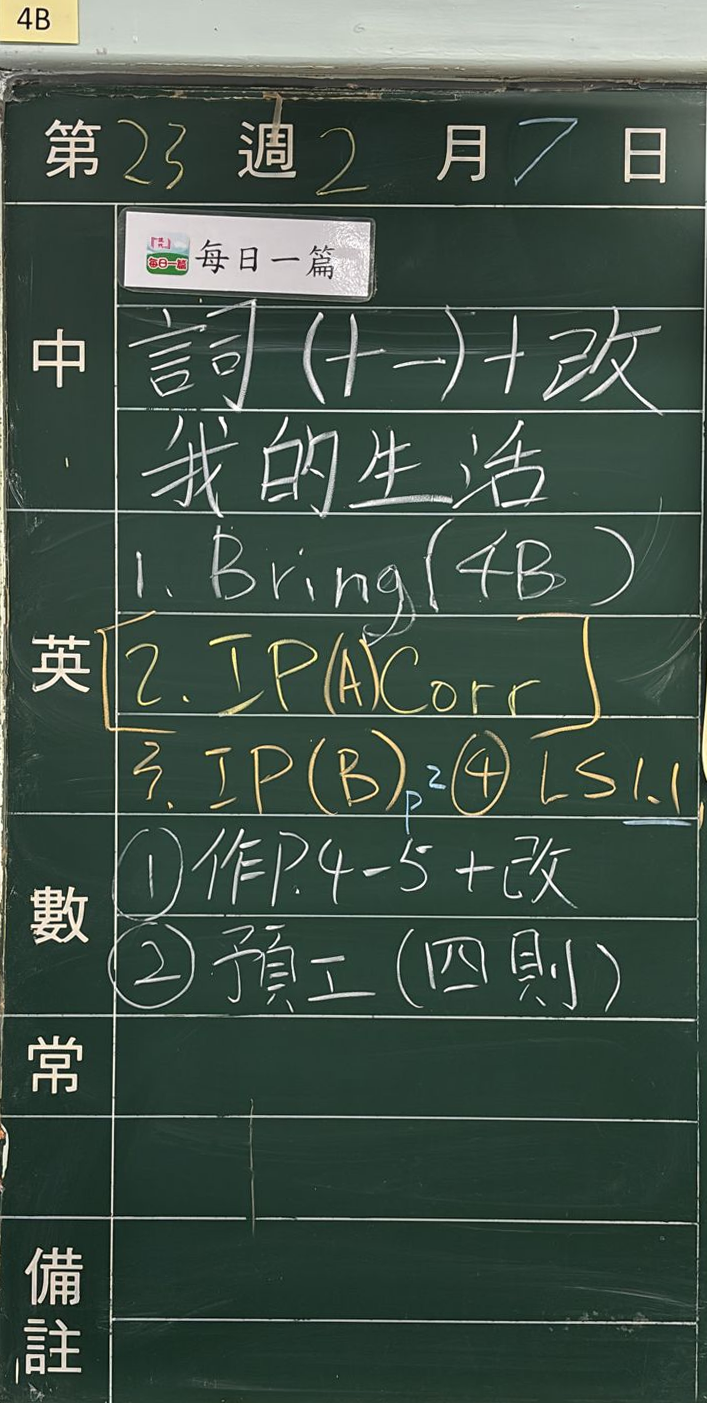 4B
第23週2月7日
中
每日一篇
詞(十一)+改
我的生活
英
1. Bring(4B)
[2. IP(A)Corr]
3. IP(B)p2④ LS1.1
數
①作P.4-5+改
②預工(四則)
常
備註